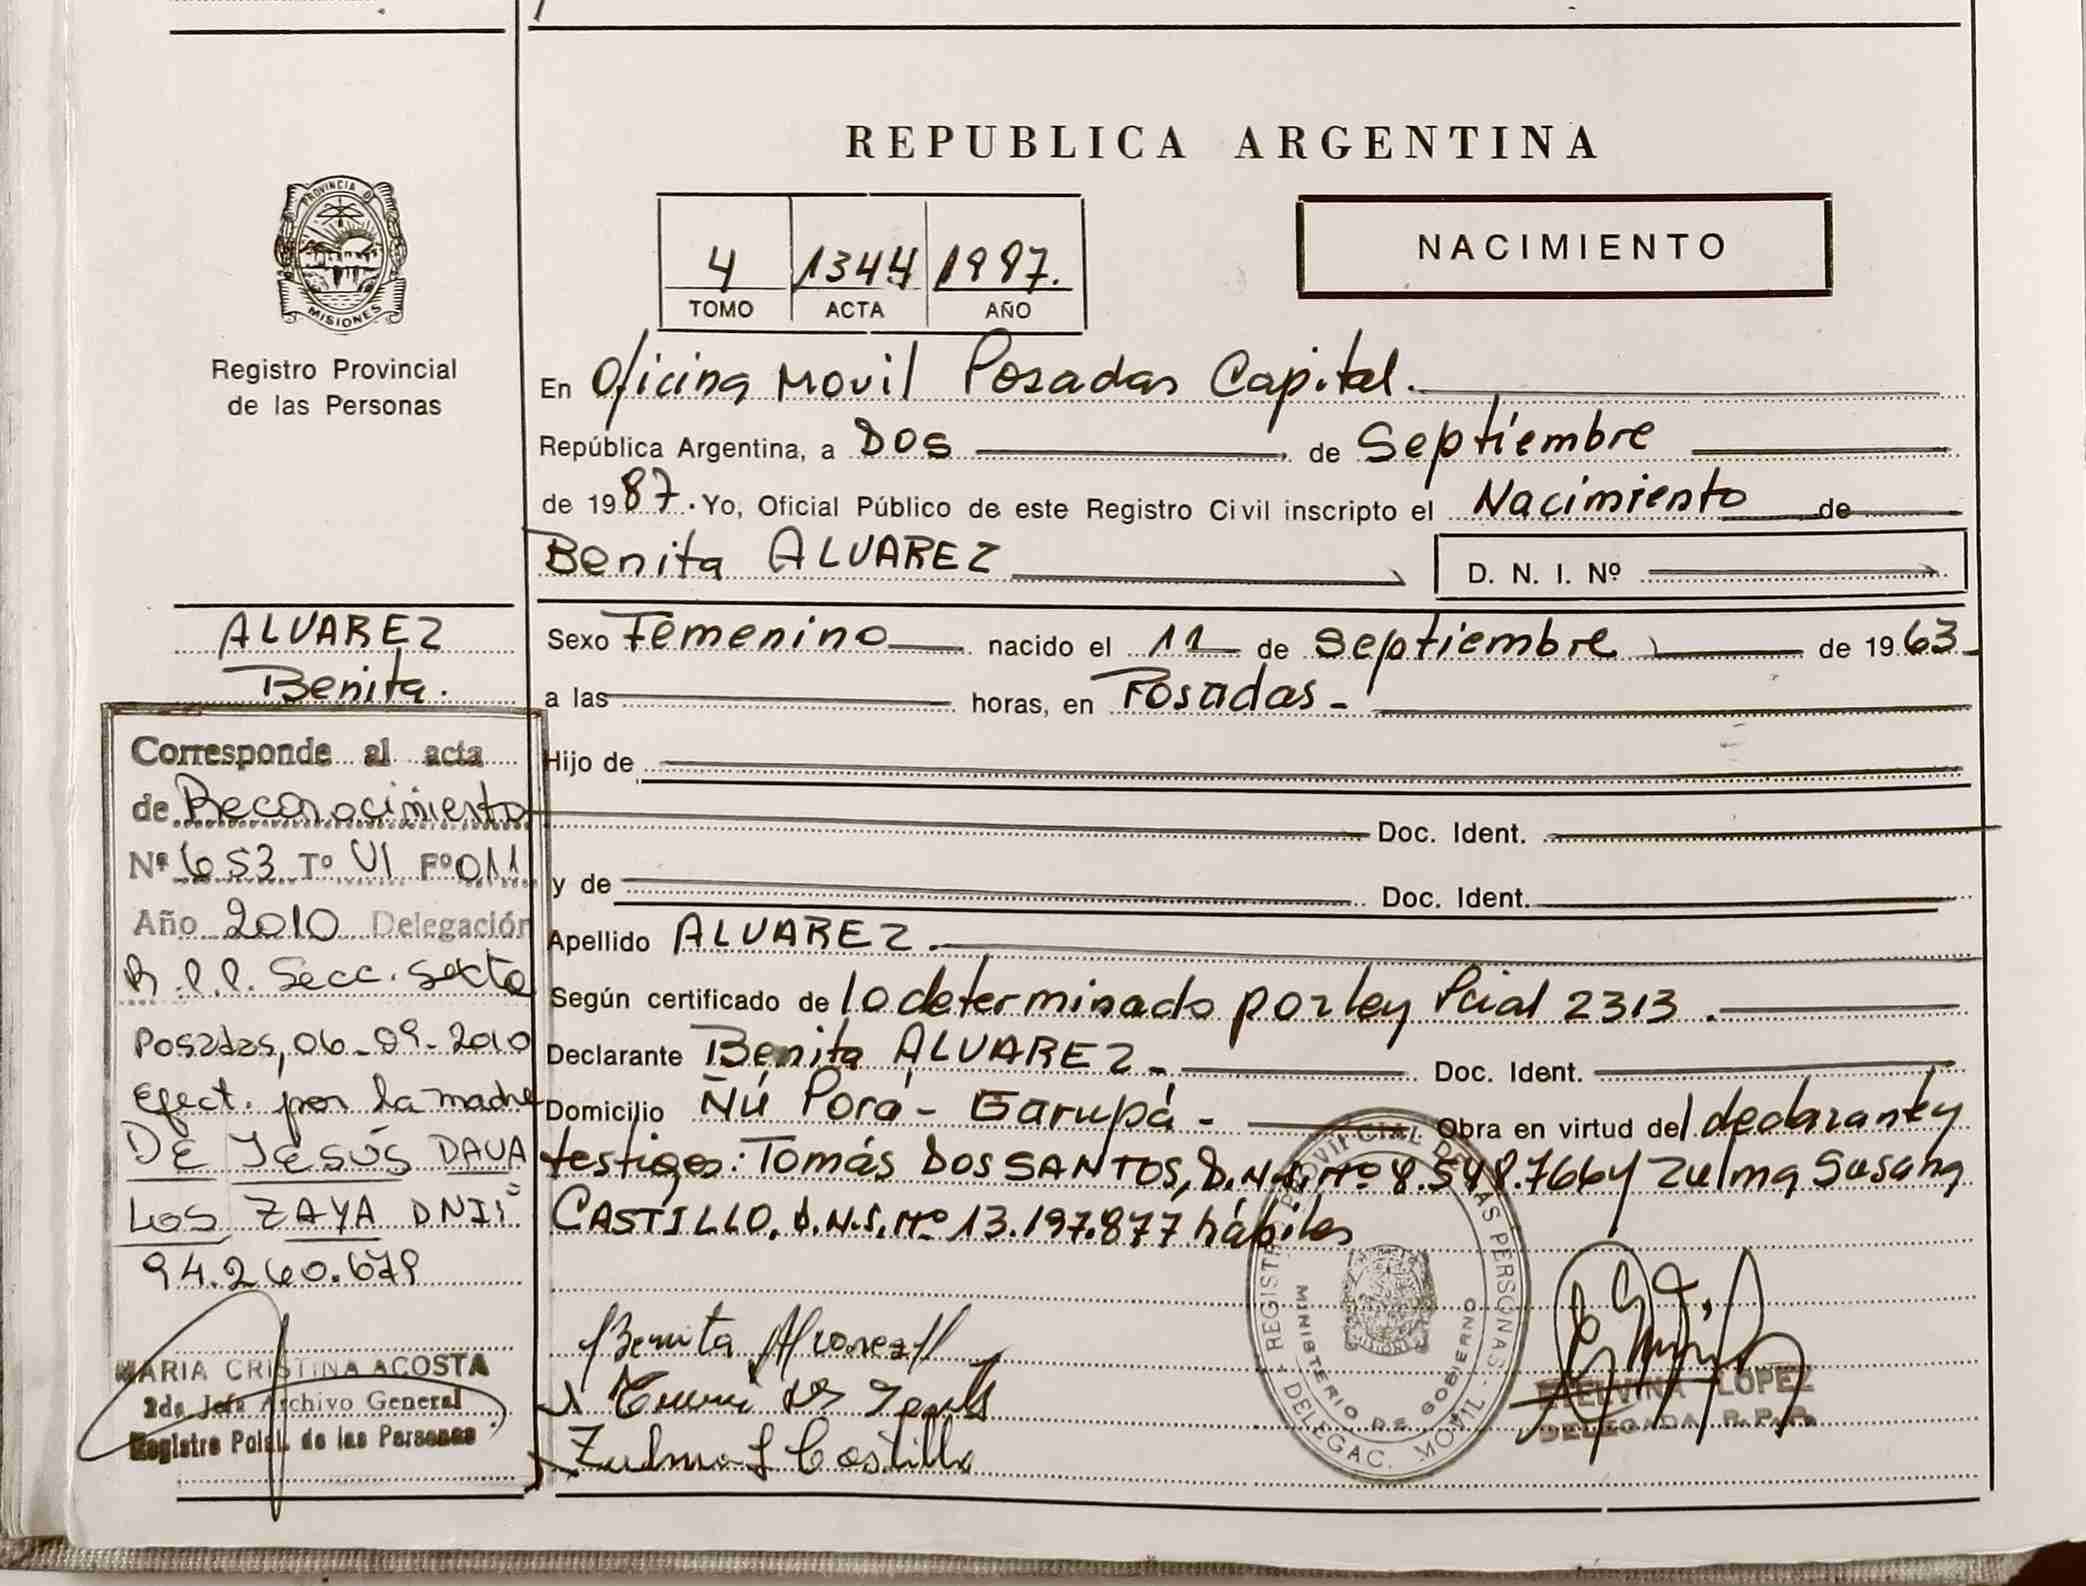 REPUBLICA ARGENTINA
PROVINCIA D
MISIONES
Registro Provincial
de las Personas
4 1344 1987.
TOMO ACTA AÑO
NACIMIENTO
En Oficina Movil Posadas Capital.
República Argentina, a Dos de Septiembre
de 1987. Yo, Oficial Público de este Registro Civil inscripto el Nacimiento de
Benita ALVAREZ D. N. I. Nº
Sexo Femenino nacido el 11 de Septiembre de 1963
a las horas, en Posadas
Hijo de
Doc. Ident.
y de Doc. Ident.
Apellido ALVAREZ.
Según certificado de lo determinado por ley Pcial 2313.
Declarante Benita ALVAREZ Doc. Ident.
Domicilio Ñú Porá - Garupá - Obra en virtud del declarante y
testigos: Tomás DOS SANTOS, D.N.I. Nº 8.548.766 y Zulma Susana
CASTILLO, D.N.I. Nº 13.197.877 hábiles
Benita Alvarez
Zulma S Castillo
REGISTRO PROVINCIAL DE LAS PERSONAS
MINISTERIO DE GOBIERNO
DELEGAC. MOVIL
MISIONES
LOPEZ
DELEGADA R. P. P.
ALVAREZ
Benita.
Corresponde al acta
de Reconocimiento
Nº 653 Tº VI Fº 011
Año 2010 Delegación
R.P.P. Secc. Sexta
Posadas, 06-09-2010
Efect. por la madre
DE JESÚS DAVA
LOS ZAYA DNI:
94.260.679
MARIA CRISTINA ACOSTA
2da Jefa Archivo General
Registro Pcial. de las Personas